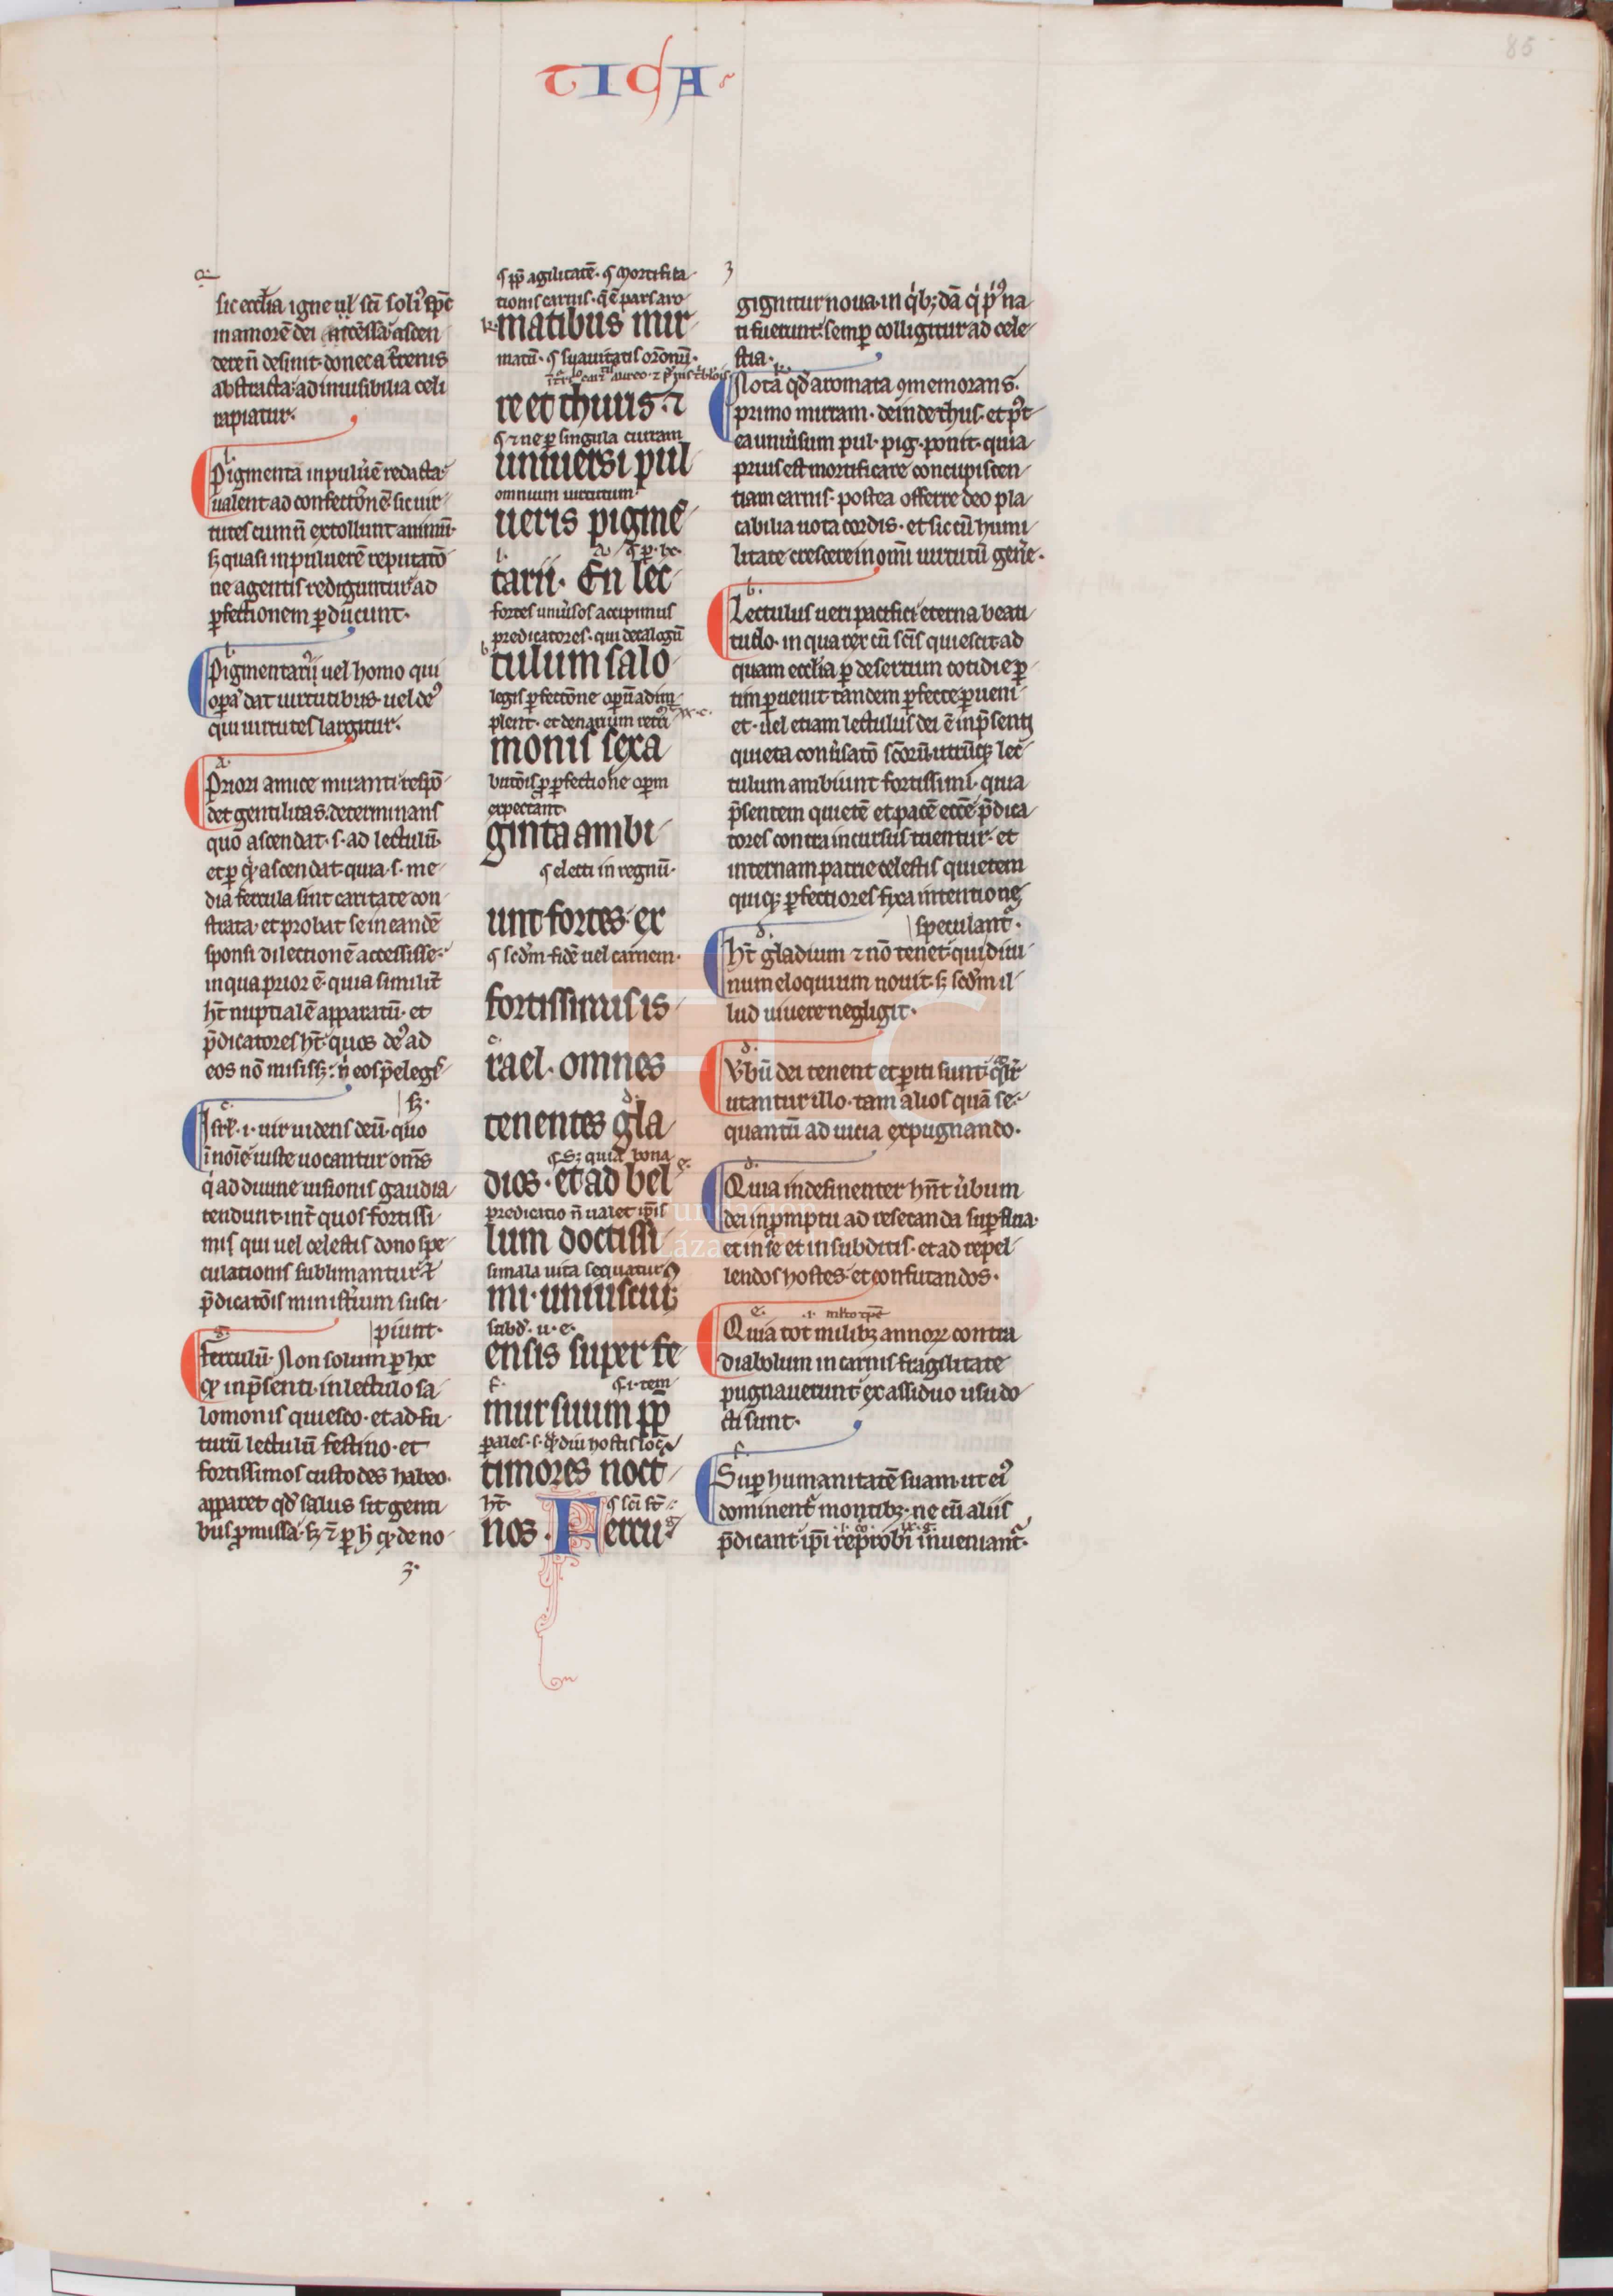 TICA
85
a.
sic ecclia igne ul' sci soli9 spc
in amorē dei accēssa ascen
dere n̄ desinit. donec a t̄renis
abstracta: ad inuisibilia celi
rapiatur.
l.
Pigmenta in puluē redacta
ualent ad confectōnē. sic uir
tutes cum n̄ extollunt animū.
sꝫ quasi in puluerē reputatō
ne agentis rediguntur ad
ꝑfectionem ꝑducunt.
l.
Pigmentari9 uel homo qui
oꝑa dat uirtutibus. uel de9
qui uirtutes largitur.
a.
Priori amice miranti respō
det gentilitas. determinans
quo ascendat. s. ad lectulū.
et ꝑ qd ascendat. quia. s. me
dia fercula sint caritate con
strata. et probat se in eandē
sponsi dilectionē accessisse.
in qua prior ē. quia similit̄
ht̄ nuptialē apparatū. et
p̄dicatores ht̄. quos de9 ad
eos nō misisꝫ: n̄ eos p̄elegs
sꝫ.
c.
Isrl'. i. uir uidens deū. quo
ī noīe iuste uocantur om̄s
q̇ ad diuine uisionis gaudia
tendunt. int̄ quos fortissi
mis qui uel celestis dono spe
culationis sublimantur. ł
p̄dicatōis minist̄ium susci
piunt.
g.
Ferculū. Non solum ꝑ hoc
qd in p̄senti. in lectulo sa
lomonis quiesco. et ad fu
turū lectulū festino. et
fortissimos custodes habeo.
apparet qd salus sit genti
bus ꝓmissa. sꝫ ⁊ ꝑ h̄ qd de no
3.
¶ ꝓp̄ agilitatē. ¶ Mortifica
tionis carnis. q̄ ē pars aro
k.
matibus mir
matū. ¶ suauitatis orōnū.
re et thuris. ⁊
¶ ⁊ ne ꝑ singula curram
uniuersi pul
omnium uirtutum
ueris pigmē
l.
tarii. En lec
fortes uniūsos accipimus
predicatores. qui decalogū
b.
tulum salo
legis ꝑfectōne oꝑum adim
plent. et denarium retri
monis sexa
butōis ꝑ ꝑfectione oꝑm
expectant.
ginta ambi
¶ electi in regnū.
unt fortes. ex
¶ scdm fidē uel carnem.
fortissimis is
c.
rael. omnes
d.
tenentes gla
¶ Sꝫ quia bona
e.
dios. et ad bel
predicatio n̄ ualet ip̄is
lum doctissi
si mala uita sequatur
mi. uniuscui9
subd'. u. e.
ensis super fe
f. ¶ i. tem
mur suum ꝓp̄
ꝑales. s. qd diu hostis
timores noct
ht̄. ¶ sci
nos. Fercu
3
gignitur noua. in q̇bꝫ dā q̇ p̄9 na
ti fuerunt. semꝑ colligitur ad cele
stia.
k.
Nota qd aromata 9memorans.
primo mirram. deinde thus. et p9t
ea uniūsum pul. pig. ponit. quia
prius est mortificare concupiscen
tiam carnis. postea offerre deo pla
cabilia uota cordis. et sic cū humi
litate crescere in om̄i uirtutū gene.
b.
Lectulus ueri pacifici eterna beati
tudo. in qua rex cū scis quiescit. ad
quam ecclia ꝑ desertum cotidie ꝑ
tim ꝑuenit. tandem ꝑfecte ꝑueni
et. uel etiam lectulus dei ē in p̄senti
quieta conuersatō scōrū. utrūqꝫ lec
tulum ambiunt fortissimi. quia
p̄sentem quietē et pacē eccē p̄dica
tores contra incursus tuentur. et
internam patrie celestis quietem
quiqꝫ ꝑfectiores fixa intentione
speculant̄.
d.
Ht̄ gladium ⁊ nō tenet. qui diui
num eloquium nouit. sꝫ scdm il
lud uiuere negligit.
d.
Vbū dei tenent et ꝑiti sunt qlit̄
utantur illo. tam alios quā se.
quantū ad uicia expugnando.
d.
Quia indesinenter hn̄t ūbum
dei in ꝓmptu ad resecanda suꝑflua.
et in se et in subditis. et ad repel
lendos hostes et confutandos.
e.
Quia tot milibꝫ annoꝝ contra
diabolum in carnis fragilitate
pugnauerunt. ex assiduo usu do
cti sunt.
f.
Suꝑ humanitatē suam. ut ei9
dominent̄ motibꝫ. ne cū aliis
p̄dicant. ip̄i reprobi inueniant̄.
Fundación
Lázaro Galdiano